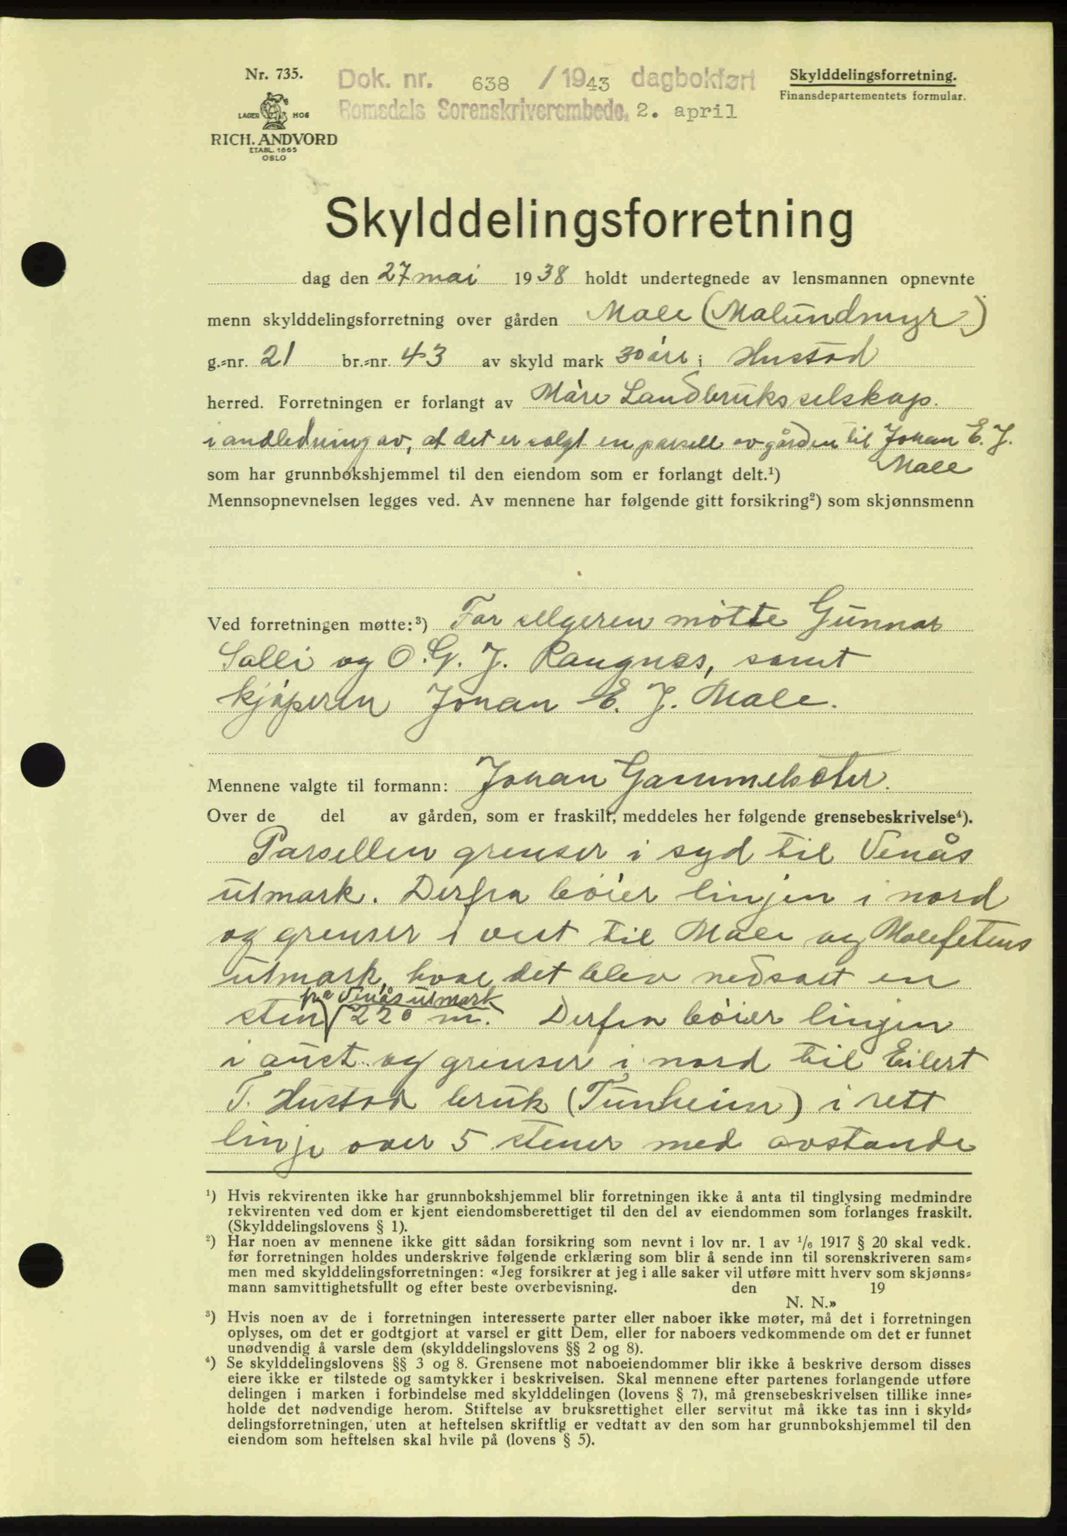 Nr. 735.
LAGER HOS
RICH. ANDVORD
ETABL. 1865
OSLO
Dok. nr. 638 / 1943 dagbokført
Romsdals Sorenskriverembede, 2. april
Skylddelingsforretning.
Finansdepartementets formular.
Skylddelingsforretning
dag den 27 mai 1938 holdt undertegnede av lensmannen opnevnte
menn skylddelingsforretning over gården Male (Malundmyr)
g.-nr. 21 br.-nr. 43 av skyld mark 30 øre i Hustad
herred. Forretningen er forlangt av Møre Landbruksselskap.
i andledning av, at det er solgt en parsell av gården til Johan E. J.
Male
som har grunnbokshjemmel til den eiendom som er forlangt delt.¹)
Mennsopnevnelsen legges ved. Av mennene har følgende gitt forsikring²) som skjønnsmenn
Ved forretningen møtte:³) For selgeren møtte Gunnar
Solli og O. G. J. Raugnes, samt
kjøperen Johan E. J. Male.
Mennene valgte til formann: Johan Gammelsæter.
Over de del av gården, som er fraskilt, meddeles her følgende grensebeskrivelse⁴).
Parsellen grenser i syd til Venås
utmark. Derfra bøier linjen i nord
og grenser i vest til Male og Malefetens
utmark, hvor det blev nedsatt en
fra Venås utmark
sten 220 m. Derfra bøier linjen
i aust og grenser i nord til Eilert
T. Hustad bruk (Tunheim) i rett
linje over 5 stener med avstande
¹) Hvis rekvirenten ikke har grunnbokshjemmel blir forretningen ikke å anta til tinglysing medmindre
rekvirenten ved dom er kjent eiendomsberettiget til den del av eiendommen som forlanges fraskilt.
(Skylddelingslovens § 1).
²) Har noen av mennene ikke gitt sådan forsikring som nevnt i lov nr. 1 av ¹/₆ 1917 § 20 skal vedk.
før forretningen holdes underskrive følgende erklæring som blir å sende inn til sorenskriveren sam-
men med skylddelingsforretningen: «Jeg forsikrer at jeg i alle saker vil utføre mitt hverv som skjønns-
mann samvittighetsfullt og efter beste overbevisning. den 19
N. N.»
³) Hvis noen av de i forretningen interesserte parter eller naboer ikke møter, må det i forretningen
oplyses, om det er godtgjort at varsel er gitt Dem, eller for naboers vedkommende om det er funnet
unødvendig å varsle dem (skylddelingslovens §§ 2 og 8).
⁴) Se skylddelingslovens §§ 3 og 8. Grensene mot naboeiendommer blir ikke å beskrive dersom disses
eiere ikke er tilstede og samtykker i beskrivelsen. Skal mennene efter partenes forlangende utføre
delingen i marken i forbindelse med skylddelingen (lovens § 7), må grensebeskrivelsen tillike inne-
holde det nødvendige herom. Stiftelse av bruksrettighet eller servitut må ikke tas inn i skyld-
delingsforretningen, uten at heftelsen skriftlig er vedtatt av den som har grunnbokshjemmel til den
eiendom som heftelsen skal hvile på (lovens § 5).